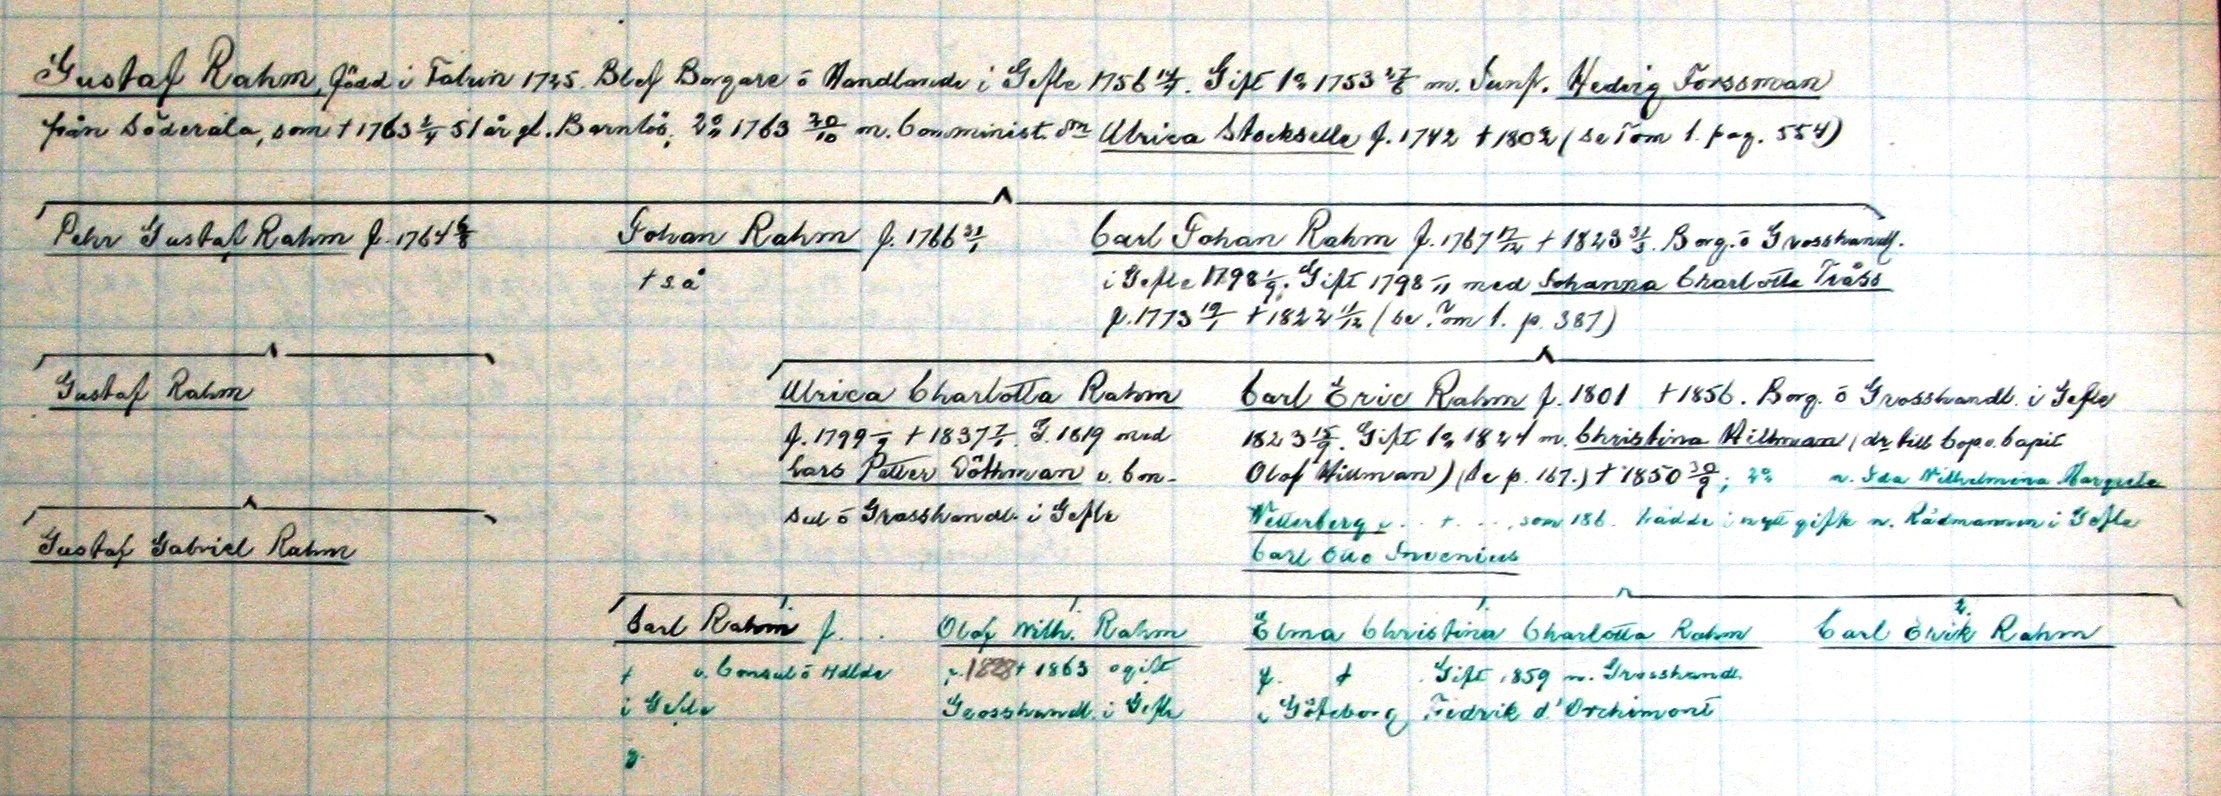 Gustaf Rahm, född i Falun 1725. Blef Borgare ö Handlande i Gefle 1756 14/7. Gift 1o 1753 27/8 m. Junf. Hedvig Forssman
från Söderala, som † 1763 2/4 51 år gl. Barnlös, 2o 1763 20/10 m. Comminist. drn Ulrica Stecksella f. 1742 † 1802 (se Tom 1. pag. 554)
Pehr Gustaf Rahm f. 1764 6/8
Johan Rahm f. 1766 21/1
† s. å
Carl Johan Rahm f. 1767 17/12 † 1823 31/3. Borg. ö Grosshandl.
i Gefle 1798 1/9. Gift 1798 /11 med Johanna Charlotta Tråss
f. 1773 19/1 † 1822 11/12 (se Tom 1. p. 387)
Gustaf Rahm
Gustaf Gabriel Rahm
Ulrica Charlotta Rahm
f. 1799 /9 † 1837 7/1. G. 1819 med
Lars Petter Göthman v. Con-
sul ö Grosshandl. i Gefle
Carl Eric Rahm f. 1801 † 1856. Borg. ö Grosshandl. i Gefle
1823 15/9. Gift 1o 1824 m. Christina Hillman (dr till Cop.v. Capit
Olof Hillman) (Se p. 167.) † 1850 30/9; 2o m. Ida Wilhelmina Margreta
Wetterberg . . . † . . ., som 186. trädde i nytt gifte m. Rådmannen i Gefle
Carl Otto Invenius
1.
Carl Rahm f. . .
† v. Consul ö Hdlde
i Gefle
g.
1.
Olof Wilh. Rahm
f. 1828 † 1863 ogift
Grosshandl. i Gefle
1.
Elma Christina Charlotta Rahm
f. † Gift 1859 m. Grosshandl.
i Göteborg Fredrik d'Orchimont
2.
Carl Erik Rahm